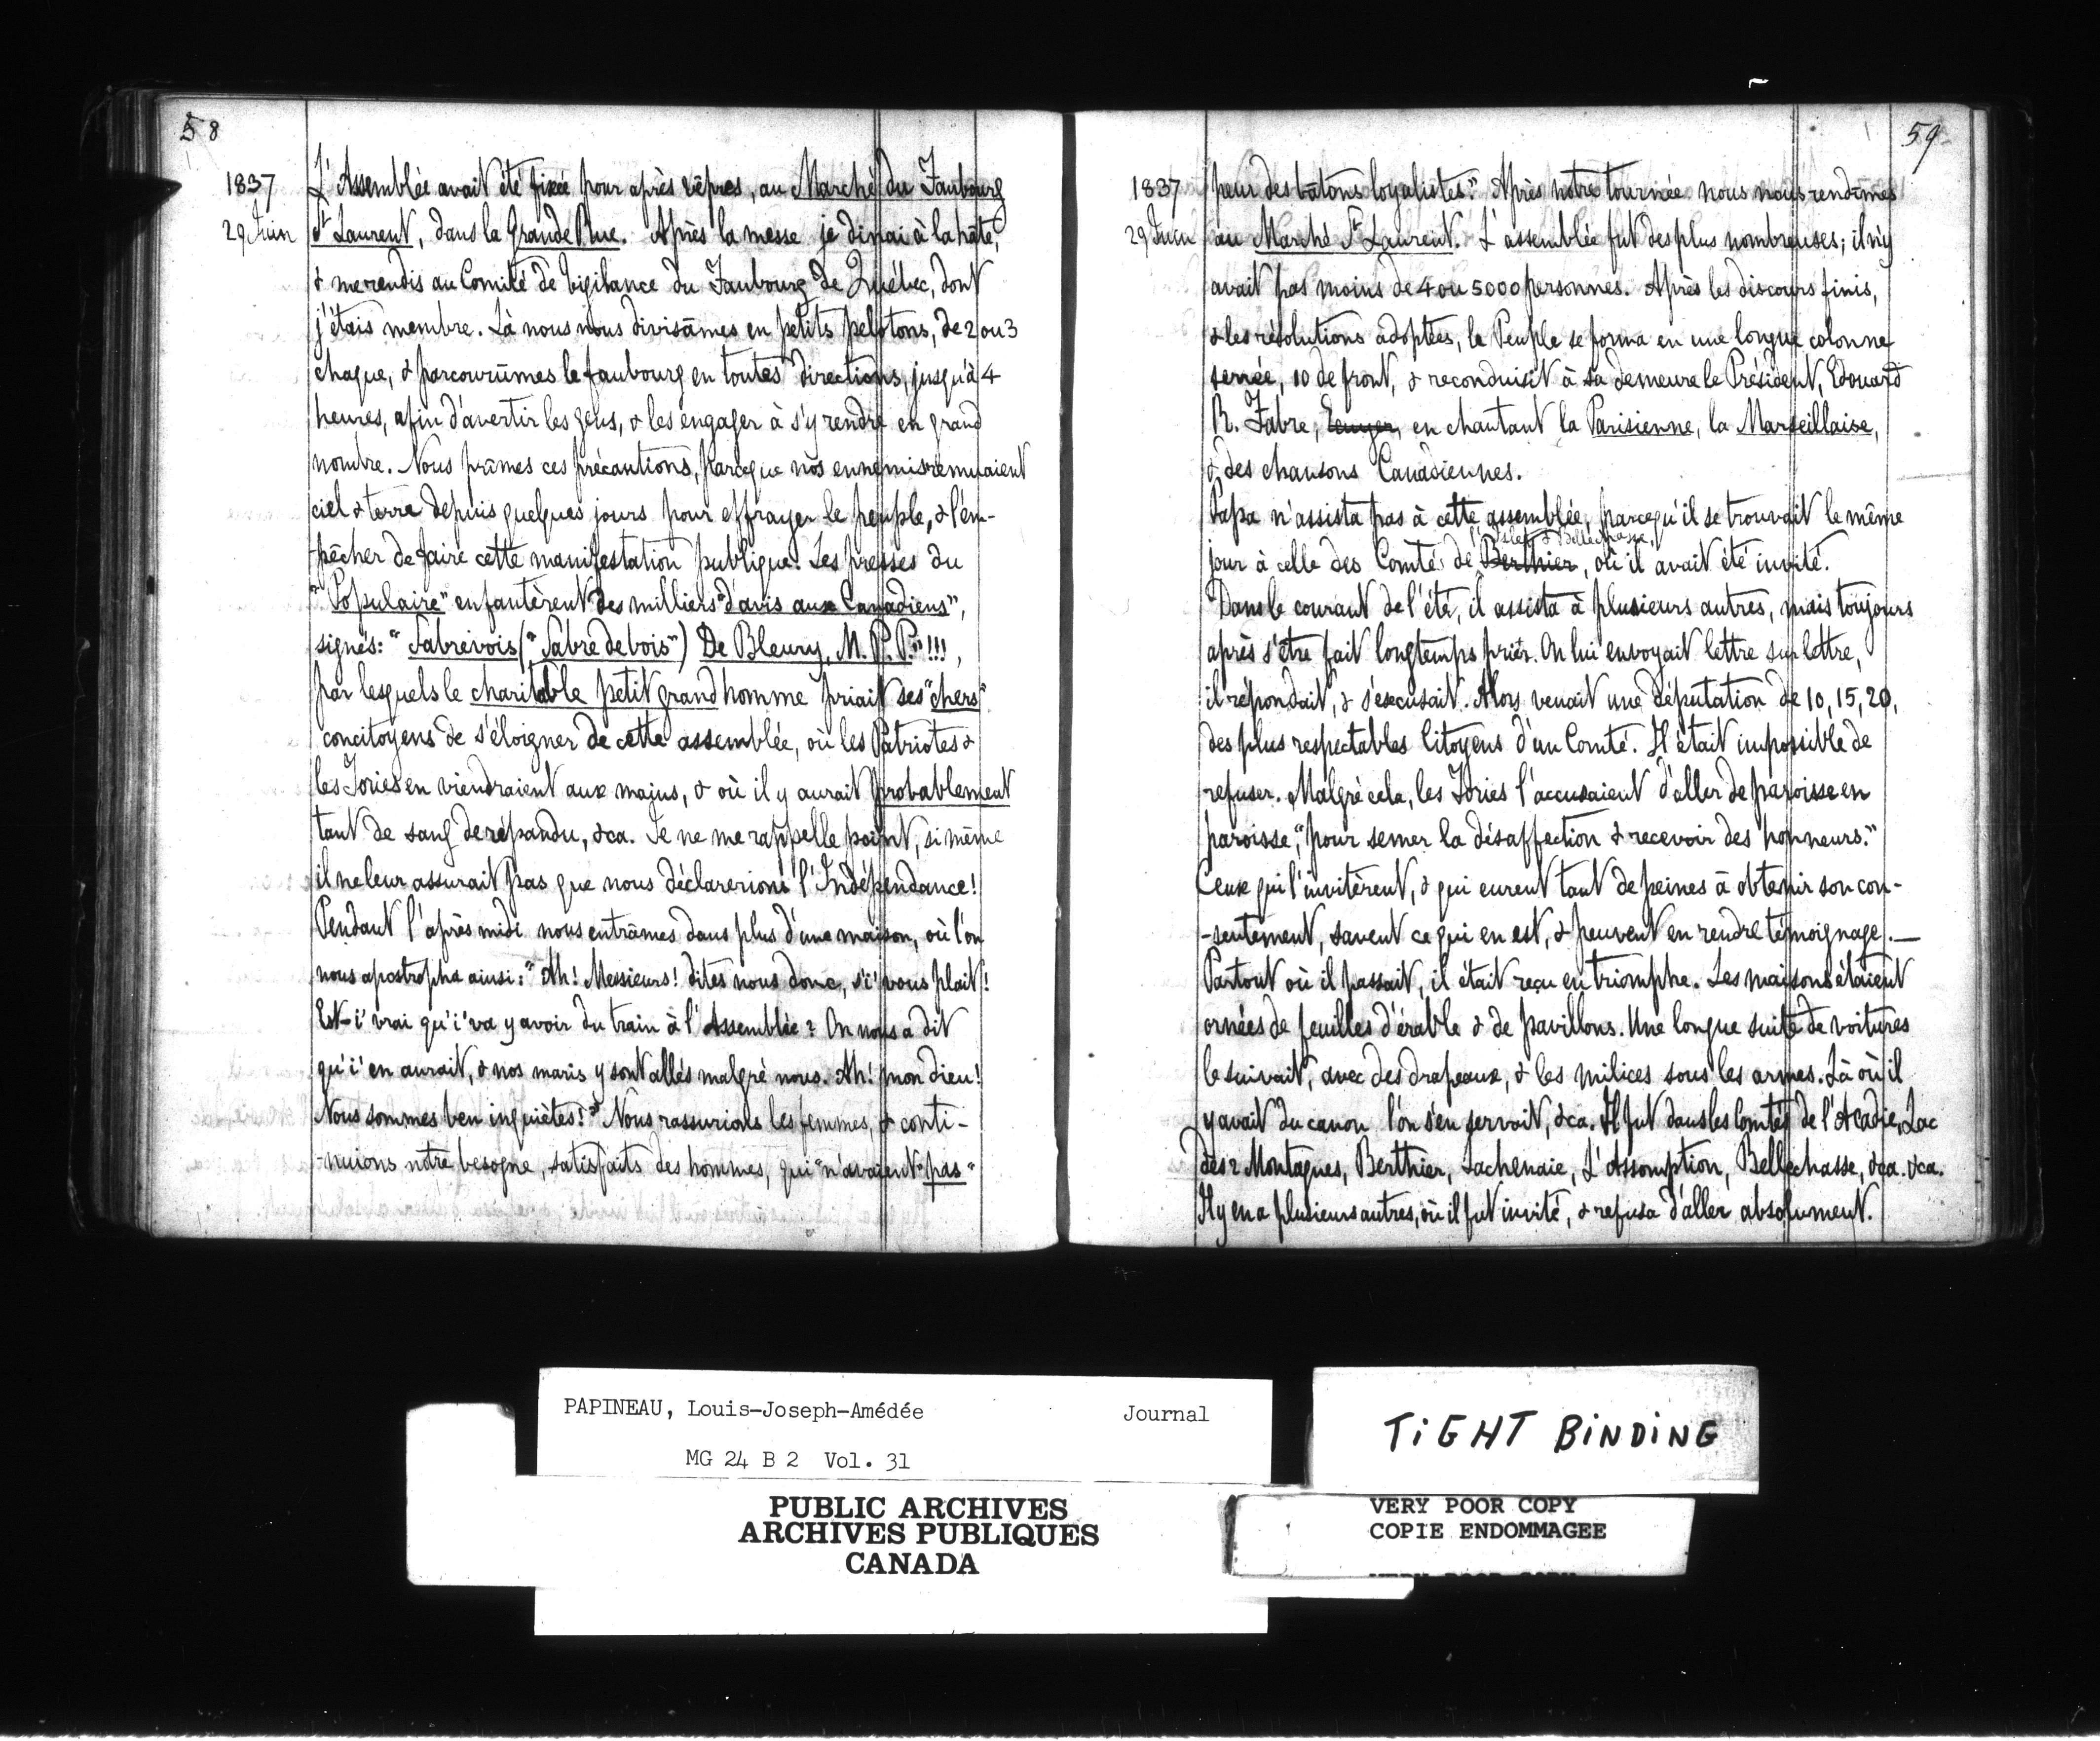 58
1837
29 Juin
L'Assemblée avait été fixée pour après vêpres, au Marché du Faubourg
St Laurent, dans la Grande Rue. Après la messe je dinai à la hâte,
& me rendis au Comité de Vigilance du Faubourg de Québec, dont
j'étais membre. Là nous nous divisâmes en petits pelotons, de 2 ou 3
chaque, & parcourûmes le faubourg en toutes directions, jusqu'à 4
heures, afin d'avertir les gens, & les engager à s'y rendre en grand
nombre. Nous prîmes ces précautions, parceque nos ennemis remuaient
ciel & terre depuis quelques jours pour effrayer le peuple, & l'em-
-pêcher de faire cette manifestation publique. Les presses du
"Populaire" enfantèrent des milliers "d'avis aux Canadiens",
signés: "Sabrevois ("Sabre de bois") De Bleury, M.P.P."!!!,
par lesquels le charitable petit grand homme priait ses "chers"
concitoyens de s'éloigner de cette assemblée, où les Patriotes &
les Tories en viendraient aux mains, & où il y aurait probablement
tant de sang de répandu, &ca. Je ne me rappelle point, si même
il ne leur assurait pas que nous déclarerions l'Indépendance!
Pendant l'après midi nous entrâmes dans plus d'une maison, où l'on
nous apostropha ainsi: "Ah! Messieurs! dites nous donc, s'i' vous plait!
Est-i' vrai qu'i' va y avoir du train à l'Assemblée? On nous a dit
qu'i' en aurait, & nos maris y sont allés malgré nous. Ah! mon dieu!
Nous sommes ben inquiètes!" Nous rassurions les femmes, & conti-
-nuions notre besogne, satisfaits des hommes, qui "n'avaient pas"
59
1837
29 Juin
peur des bâtons loyalistes." Après notre tournée nous nous rendîmes
au Marché St Laurent. L'assemblée fut des plus nombreuses; il n'y
avait pas moins de 4 ou 5000 personnes. Après les discours finis,
& les résolutions adoptées, le Peuple se forma en une longue colonne
serrée, 10 de front, & reconduisit à sa demeure le Président, Edouard
R. Fabre, Ecuyer, en chantant la Parisienne, la Marseillaise,
& des chansons Canadiennes.
Papa n'assista pas à cette assemblée, parcequ'il se trouvait le même
l'Islet & Bellechasse,
jour à celle des Comtés de Berthier, où il avait été invité.
Dans le courant de l'été, il assista à plusieurs autres, mais toujours
après s'être fait longtemps prier. On lui envoyait lettre sur lettre,
il répondait, & s'excusait. Alors venait une députation de 10, 15, 20,
des plus respectables Citoyens d'un Comté. Il était impossible de
refuser. Malgré cela, les Tories l'accusaient d'aller de paroisse en
paroisse, "pour semer la désaffection & recevoir des honneurs."
Ceux qui l'invitèrent, & qui eurent tant de peines à obtenir son con-
-sentement, savent ce qui en est, & peuvent en rendre témoignage.—
Partout où il passait, il était reçu en triomphe. Les maisons étaient
ornées de feuilles d'érable & de pavillons. Une longue suite de voitures
le suivait, avec des drapeaux, & les milices sous les armes. Là où il
y avait du canon l'on s'en servait, &ca. Il fut dans les Comtés de l'Acadie, Lac
des 2 Montagnes, Berthier, Lachenaie, L'Assomption, Bellechasse, &ca. &ca.
Il y en a plusieurs autres, où il fut invité, & refusa d'aller absolument.
PAPINEAU, Louis-Joseph-Amédée Journal
MG 24 B 2 Vol. 31
PUBLIC ARCHIVES
ARCHIVES PUBLIQUES
CANADA
TIGHT BINDING
VERY POOR COPY
COPIE ENDOMMAGEE